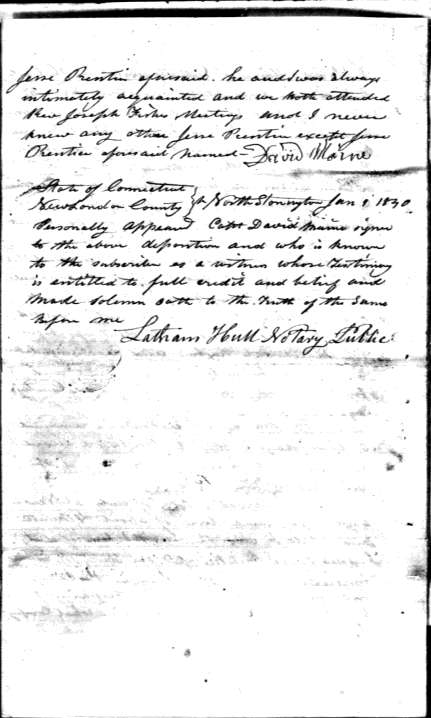 Jesse Prentice aforesaid. he and I was always
intimately acquainted and we both attended
Rev Joseph Fishes Meetings and I never
knew any other Jesse Prentice except Jesse
Prentice aforesaid named— David Maine
State of Connecticut
New London County } ss North Stonington Jan 1 1840
Personally appeared Capt David Maine signer
to the above deposition and who is known
to the subscriber as a witness whose testimony
is entitled to full credit and belief and
made solemn oath to the truth of the same
before me
Latham Hull Notary Public